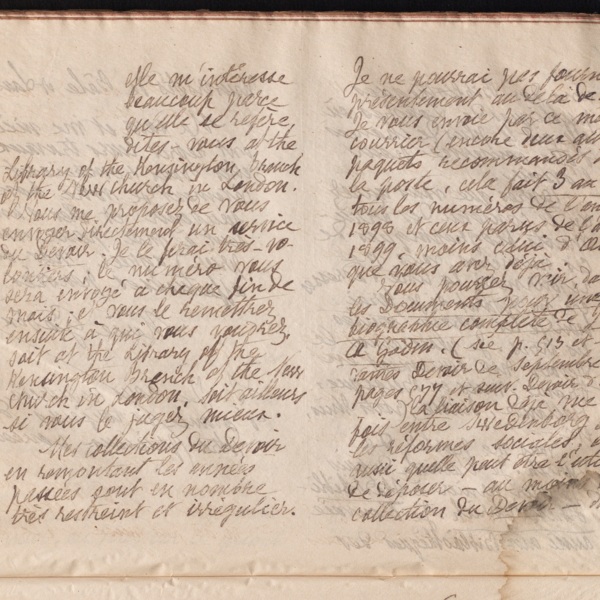 elle m'intéresse
beaucoup parce
qu'elle se réfère,
dites-vous at the
Library of the Kensington branch
of the New church in London.
Vous me proposez de vous
envoyer directement un service
du Devoir. Je le ferai très-vo-
lontiers; le numéro vous
sera envoyé à chaque fin de
mois, et vous le remettrez
ensuite à qui vous voudrez,
soit at the Library of the
Kensington Branch of the New
church in London, soit ailleurs
si vous le jugez mieux.
Mes collections du Devoir
en remontant les années
passées sont en nombre
très restreint et irrégulier.
Je ne pourrai pas
présentement au delà de
Je vous envoie par ce
courrier (encore
paquets recommandés
la poste, cela fait 3 au
tous les numéros de
1898 et ceux parus de
1899, moins celui d'
que vous avez déjà.
Vous pouvez voir
les Documents pour une
biographie complète de
A. Godin. (see p. 513 et
Devoir de Septembre
pages 577 et suiv. Devoir
la liaison
fois entre Swedenborg
les réformes sociales,
aussi quelle peut être l'
de déposer — au moins
collection du Devoir —